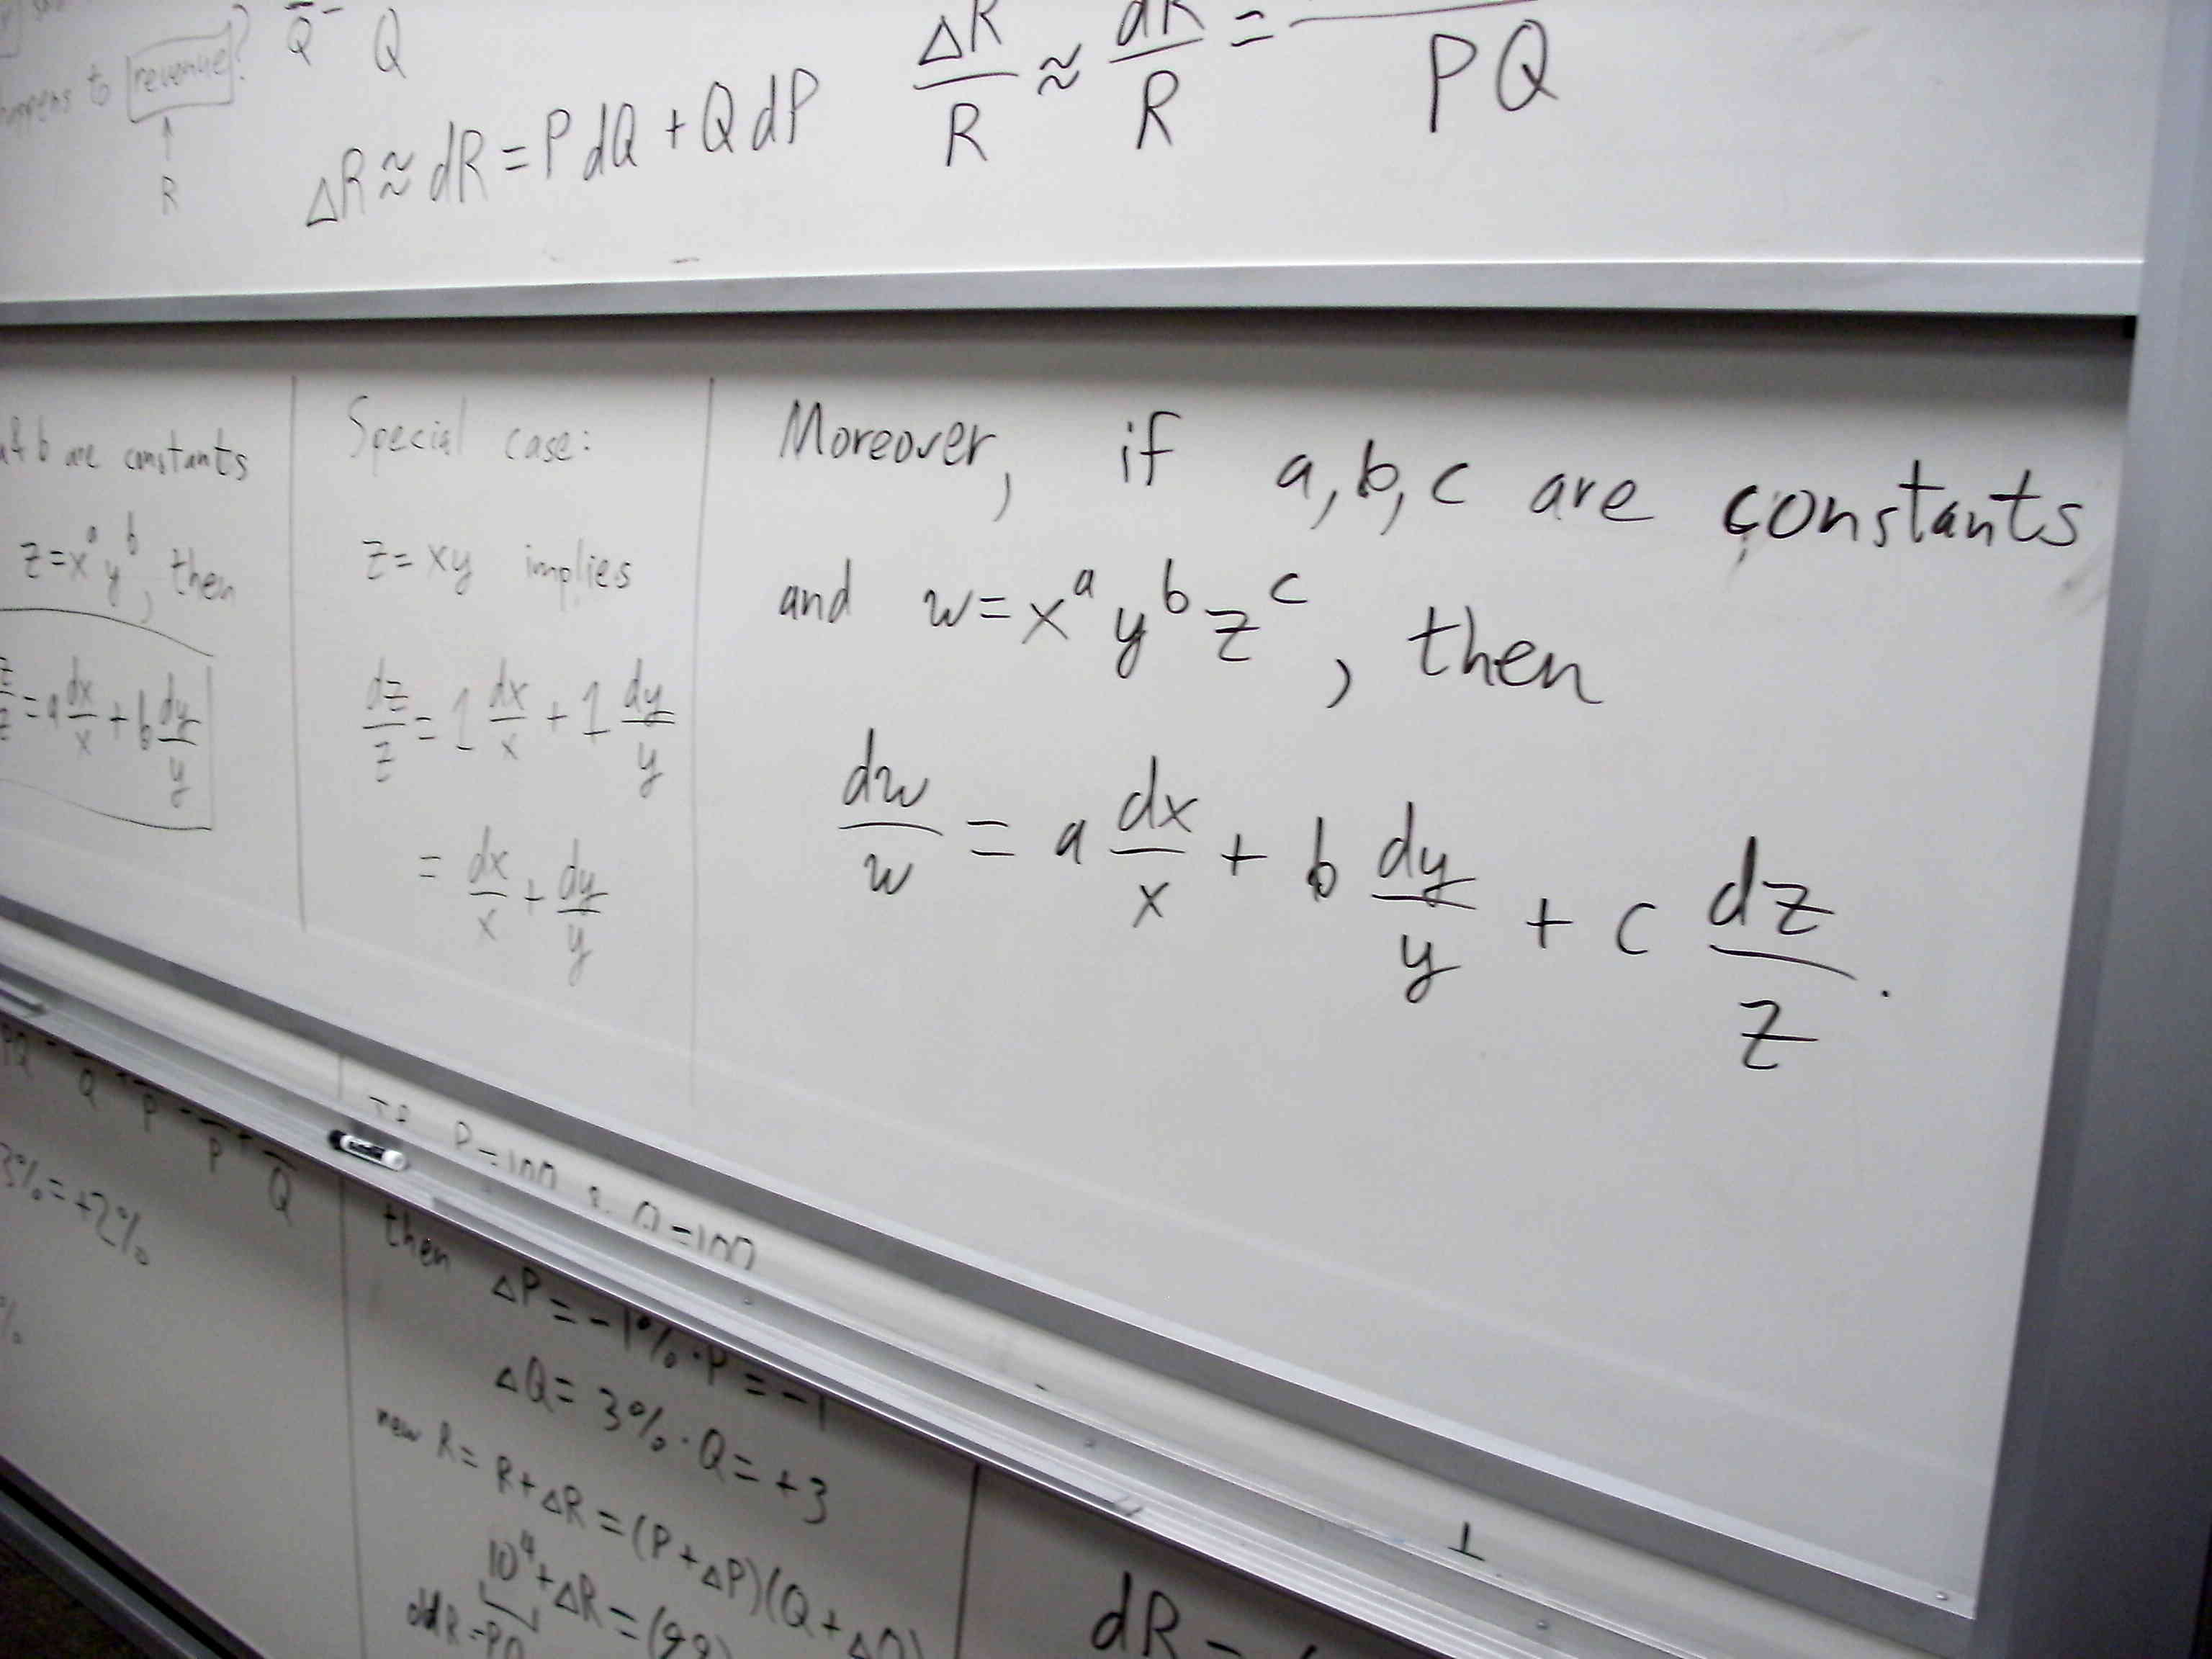 revenue?
Q Q
R
ΔR ≈ dR = P dQ + Q dP
ΔR/R ≈ dR/R = /PQ
a & b are constants
z = x^a y^b, then
z/z = a dx/x + b dy/y
Special case:
z = xy implies
dz/z = 1 dx/x + 1 dy/y
= dx/x + dy/y
Moreover, if a, b, c are constants
and w = x^a y^b z^c, then
dw/w = a dx/x + b dy/y + c dz/z.
3% = +2%
%
P = 100 & Q = 100
then ΔP = -1% · P = -1
ΔQ = 3% · Q = +3
new R = R + ΔR = (P + ΔP)(Q + ΔQ)
10^4 + ΔR = (99)
old R = PQ
dR